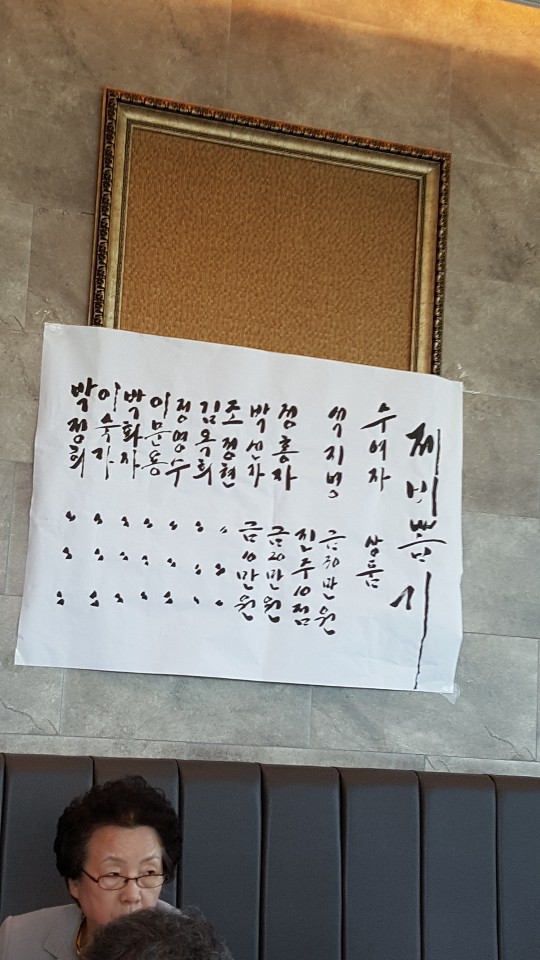 제비뽑기
수여자 상품
석지명 금30만원
진주10점
정홍자 금20만원
박선자 금10만원
조정현 〃 〃 〃
김옥희 〃 〃 〃
정영수 〃 〃 〃
이문용 〃 〃 〃
박화자 〃 〃 〃
이숙자 〃 〃 〃
박정희 〃 〃 〃